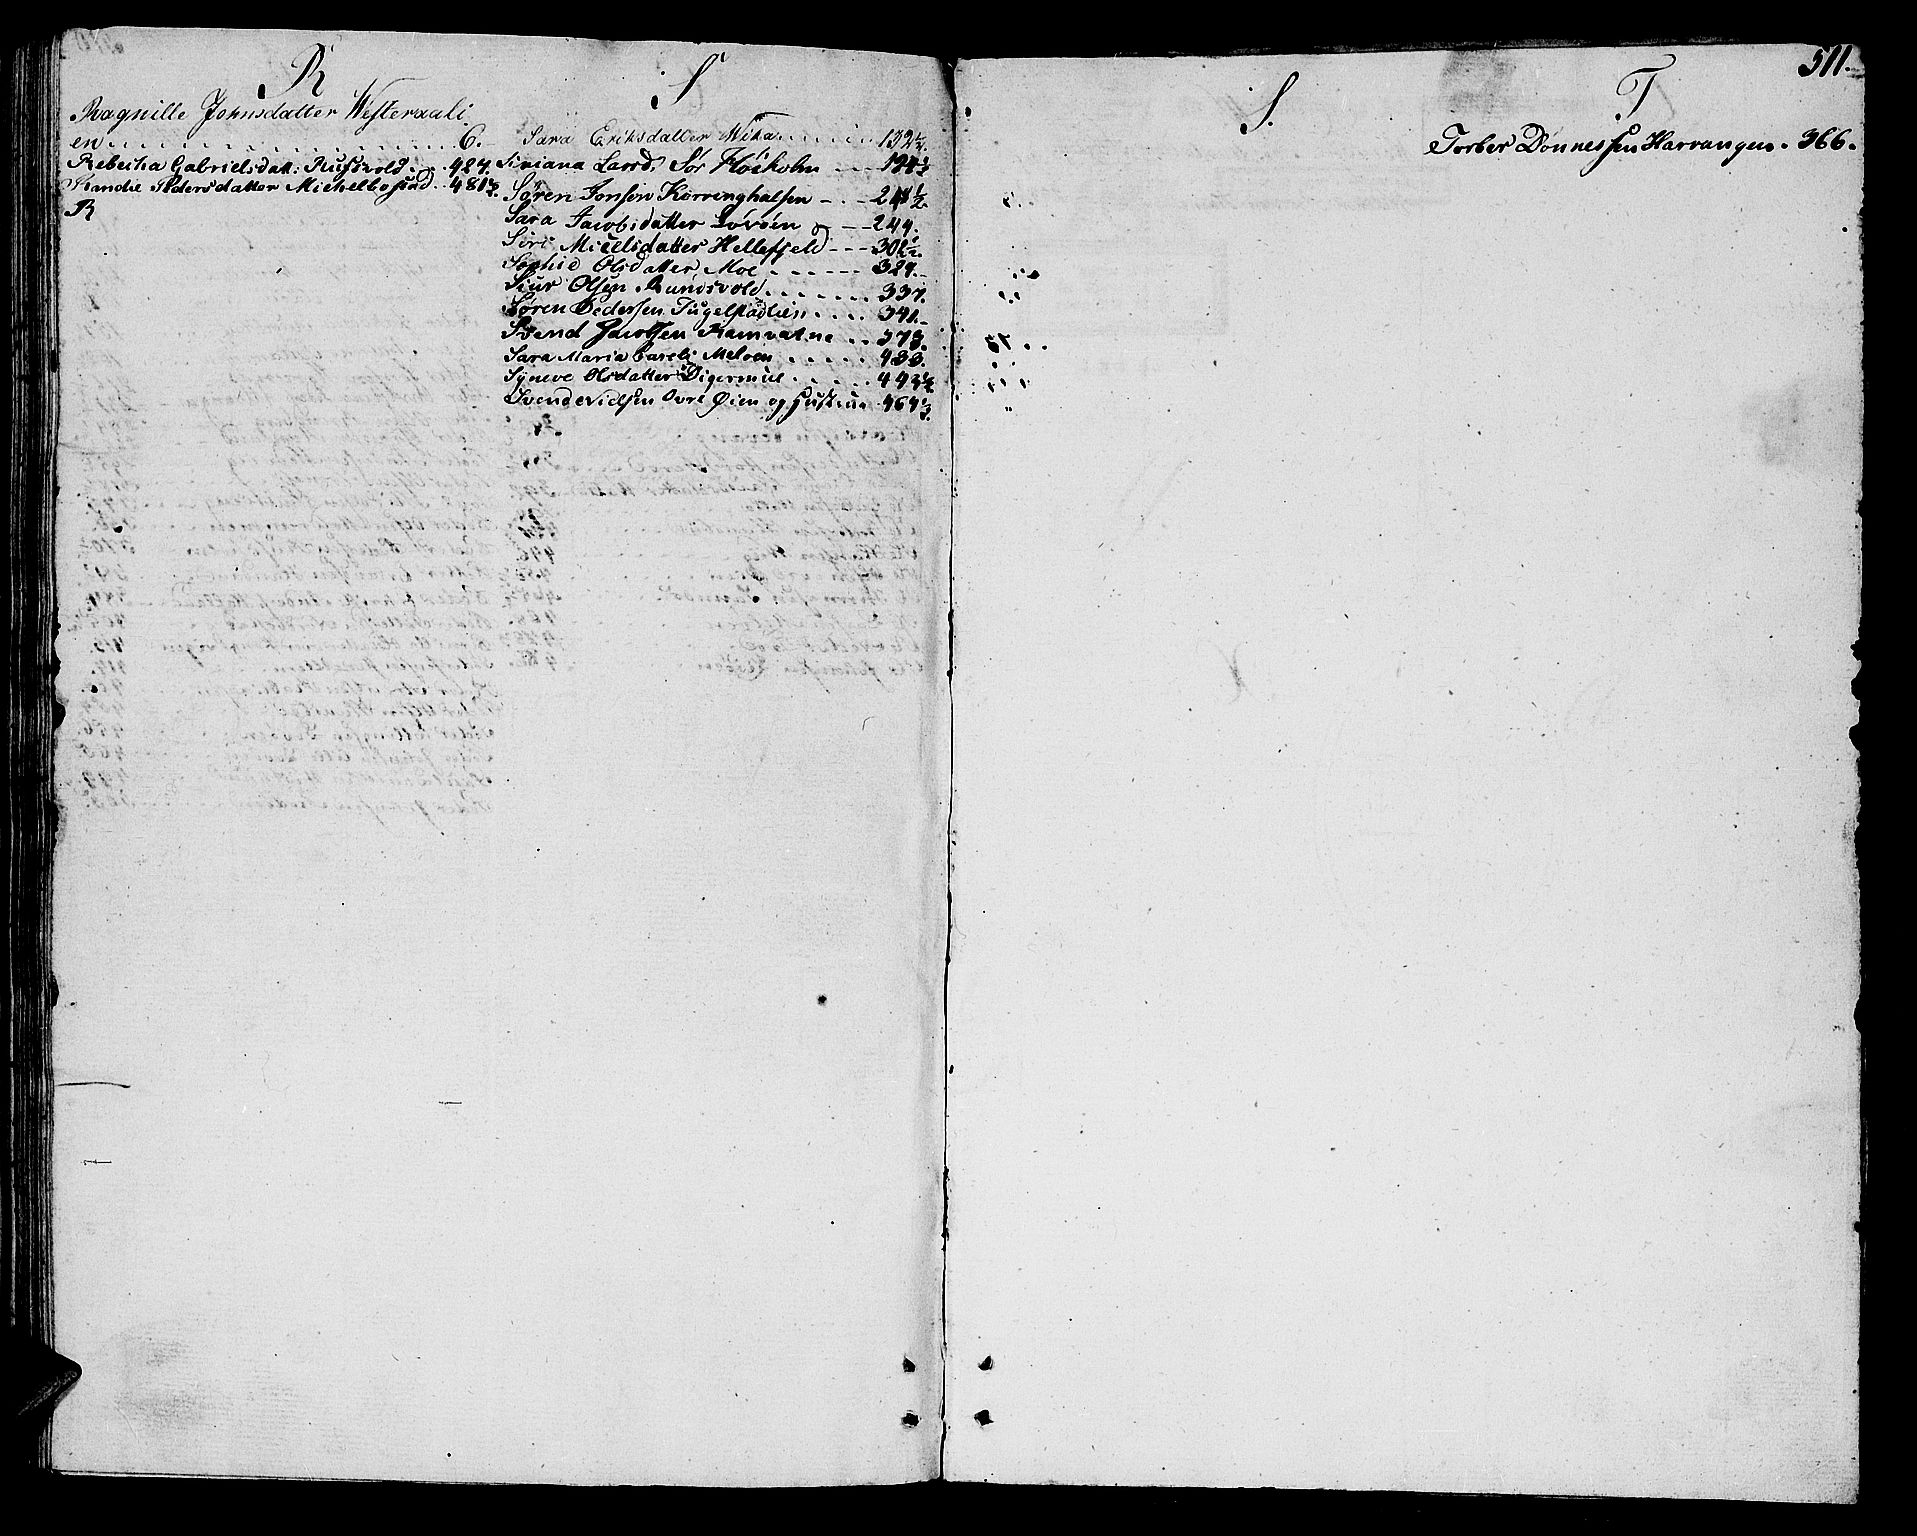 R
Ragnille Johnsdatter Westeraali
en 6.
Rebecha Gabrielsdatt: Rufsvold 427.
Randie Pedersdatter Michelbosund 481½
R
S
Sara Eriksdatter Wika 132½.
Siniana Larsd. Sør Høiholm
Søren Jonsen Kørringhalsen
Sara Jacobsdatter 249.
Siri Nielsdatter Helleffeld 302½.
Sophie Olsdatter Moe 329.
Siur Olsen Rundsvold 337.
Søren Pedersen 341.
Svend Jacobsen Ramvatne 373.
Sara Maria Careli Meloen 433.
Syneve Olsdatter Digermul 443½
Svend Nielsen Øvre Øien og Hustrue 464½.
S.
T
511.
Torber Dønnessen Harvangen. 366.